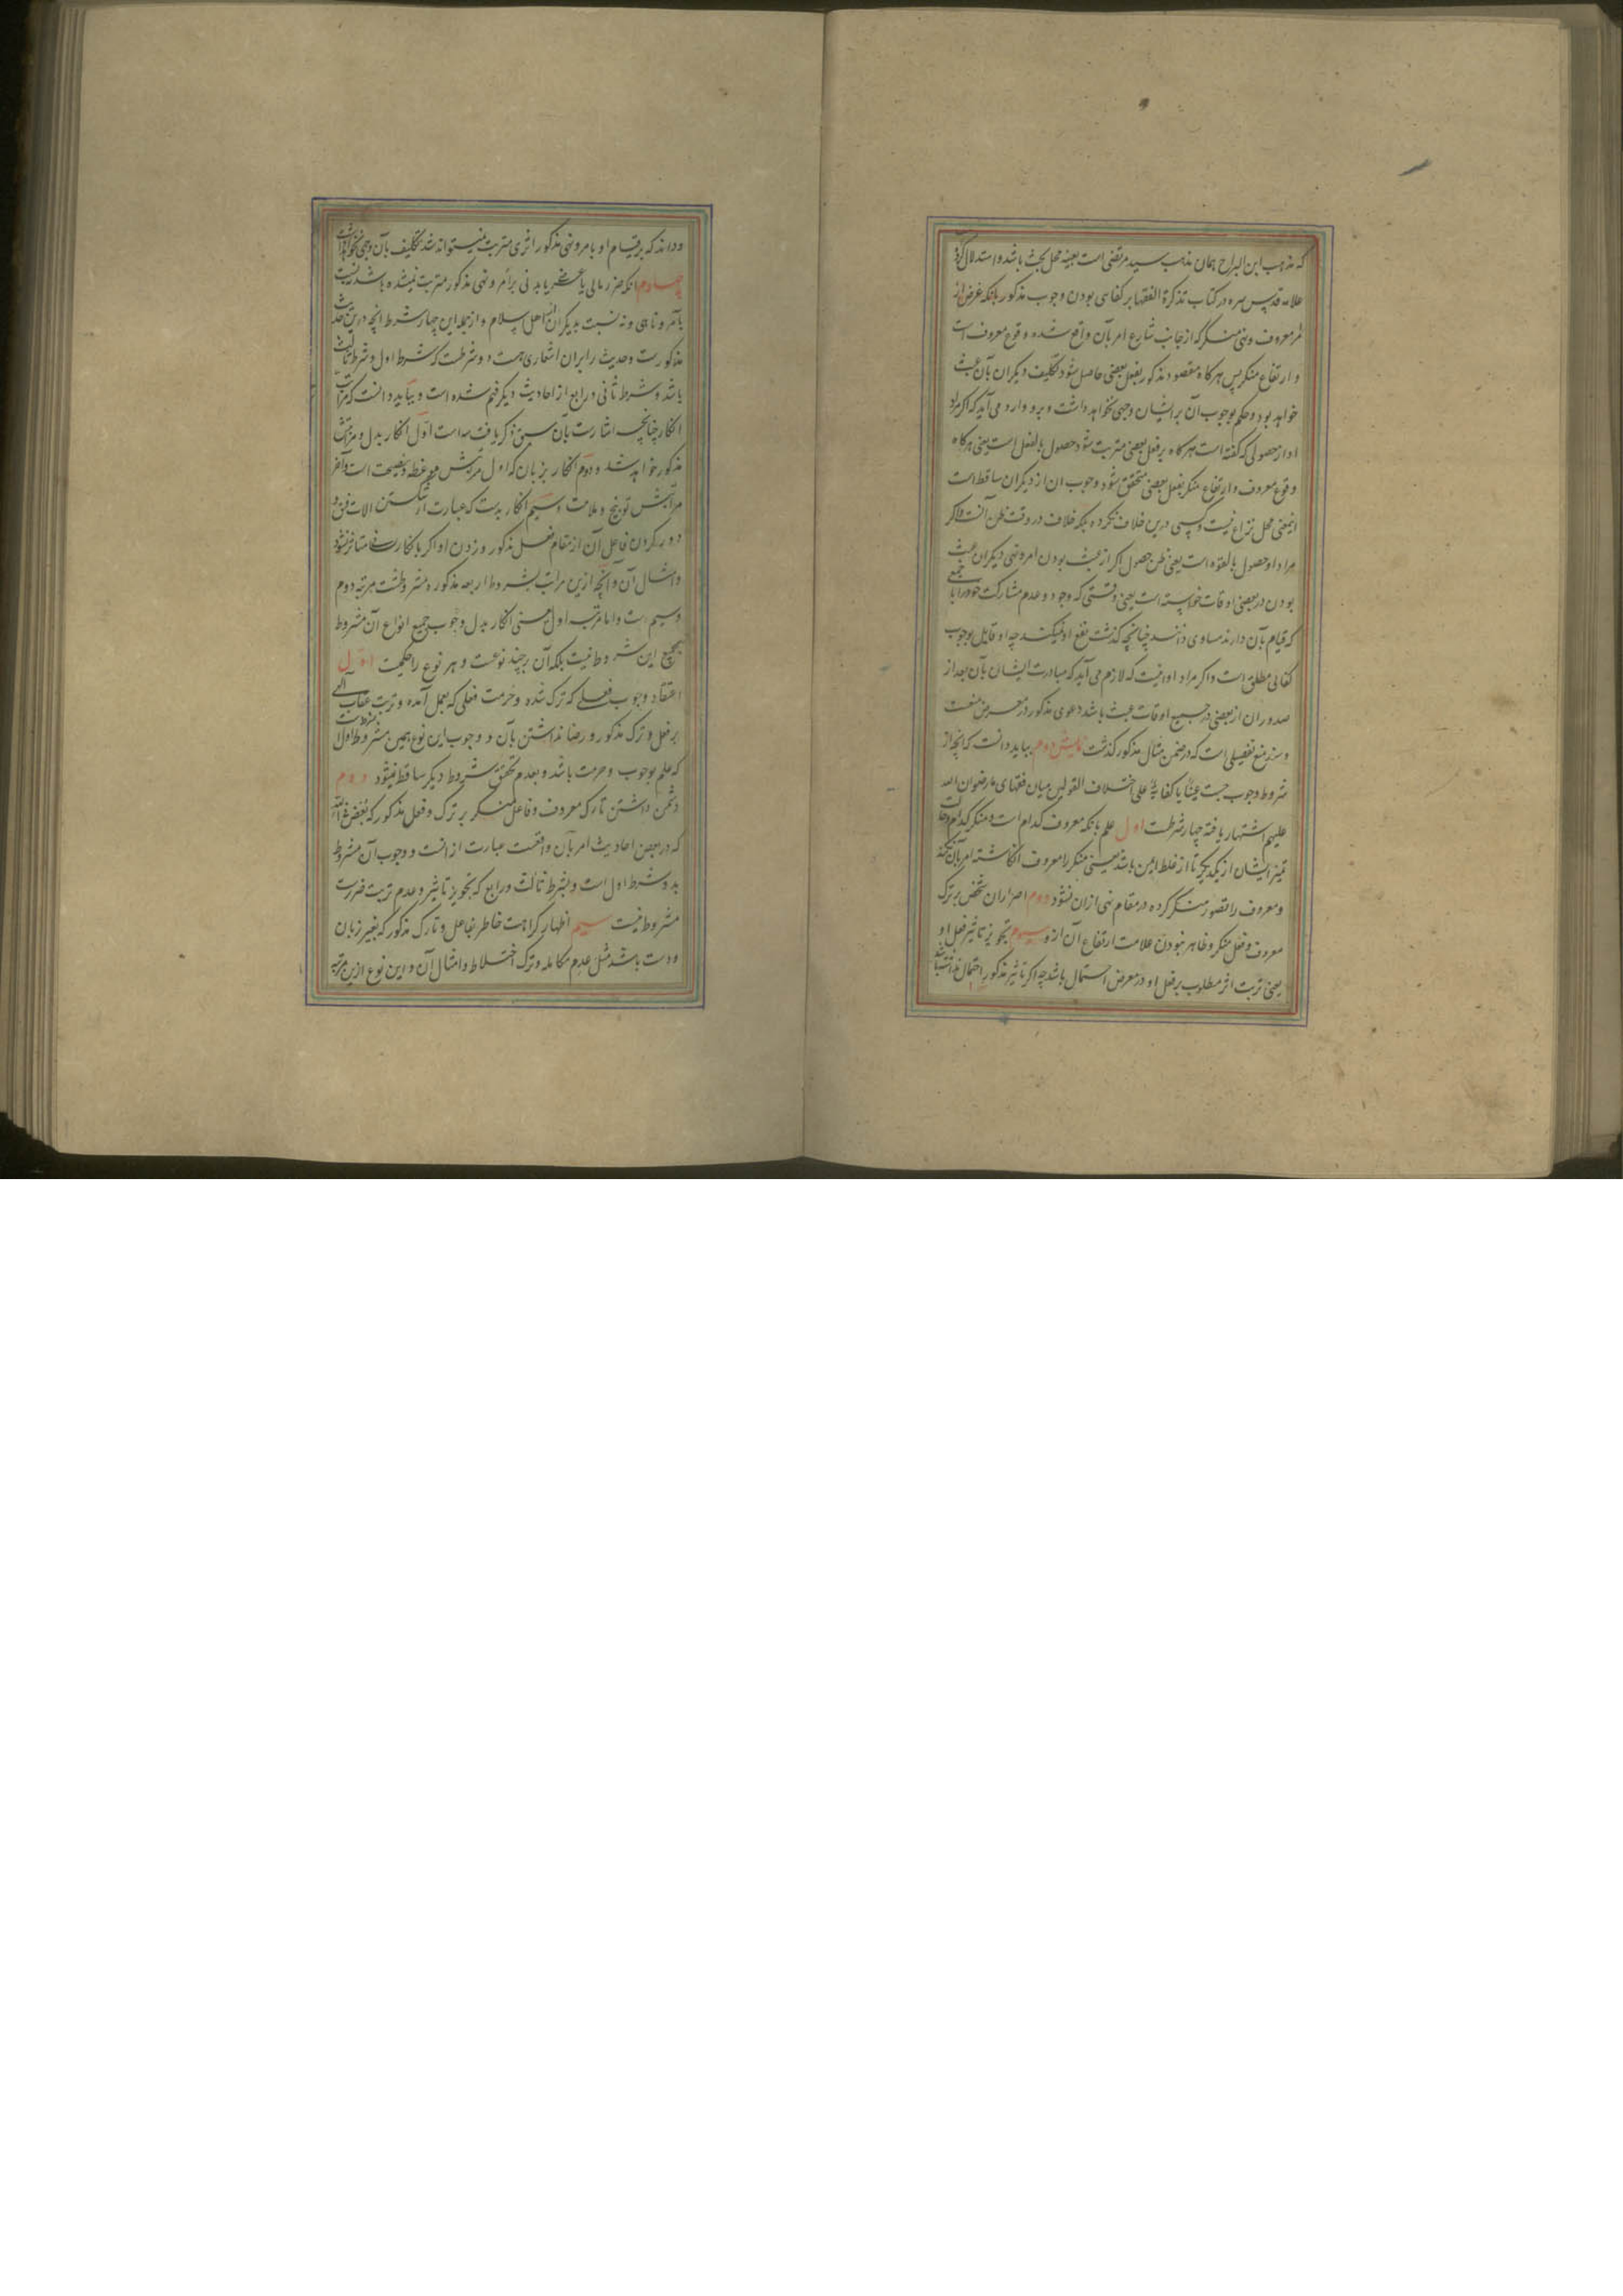 که مذهب ابن البراج همان مذهب سید مرتضی است بعینه محل بحث باشد و استدلال کرد
علامه قدس سره در کتاب تذکرة الفقها بر کفایی بودن وجوب مذکور بانکه غرض از
امر معروف و نهی منکر که از جانب شارع امر بآن واقع شده وقوع معروف است
و ارتفاع منکر پس هرکاه مقصود مذکور بفعل بعضی حاصل شود تکلیف دیکران بآن عبث
خواهد بود و حکم بوجوب آن بر ایشان وجهی نخواهد داشت و برو وارد می آید که اکر مراد
او از حصولی که کفته است هرکاه بر فعل بعضی مترتب شود حصول بالفعل است یعنی هرکاه
وقوع معروف و ارتفاع منکر بفعل بعضی متحقق شود وجوب ان از دیکران ساقط است
اینمعنی محل نزاع نیست و کسی درین خلاف نکرده بلکه خلاف در وقت ظن آنست و اکر
مراد او حصول بالقوه است یعنی ظن حصول اکر از عبث بودن امر و نهی دیکران عبث
بودن در بعضی اوقات خواسته است یعنی وقتی که وجود و عدم مشارکت خود را با جمعی
که قیام بآن دارند مساوی دانند چنانچه کذشت نفع او نمیکند چه او قایل بوجوب
کفائی مطلق است و اکر مراد او اینست که لازم می آید که مبادرت ایشان بآن بعد از
صدور ان از بعضی در جمیع اوقات عبث باشد دعوی مذکور در معرض منعست
و سند منع تفصیلی است که در ضمن مثال مذکور کذشت نمایش دوم بباید دانست که آنچه از
شروط وجوب حسبت عینا یا کفایة علی اختلاف القولین میان فقهای ما رضوان الله
علیهم اشتهار یافته چهار شرطست اول علم بانکه معروف کدام است و منکر کدام
تمیز ایشان از یکدیکر تا از غلط ایمن باشد یعنی منکر را معروف انکاشته امر بآن نکند
و معروف را تصور منکر کرده در مقام نهی از ان نشود دوم اصرار ان شخص بر ترک
معروف و فعل منکر و ظاهر نبودن علامت ارتفاع آن از و سیوم تجویز تاثیر فعل او
یعنی ترتب اثر مطلوب بر فعل او در معرض احتمال باشد چه اکر تاثیر مذکور احتمال نداشته باشد
و داند که بر قیام او بامر و نهی مذکور اثری مترتب نمیتواند شد تکلیف بآن وجهی نخواهد داشت
چهارم انکه ضرر مالی یا عرضی یا بدنی بر امر و نهی مذکور مترتب نمیشده باشد نه نسبت
بآمر و ناهی و نه نسبت بدیکران از اهل اسلام و از جمله این چهار شرط انچه درین حدیث
مذکورست و حدیث را بران اشعاری هست دو شرطست که شرط اول و شرط ثالث
باشد و شرط ثانی و رابع از احادیث دیکر فهم شده است و بباید دانست که مراتب
انکار چنانچه اشارت بآن سبق ذکر یافت سه است اول انکار بدل و مراتبش
مذکور خواهد شد و دوم انکار بزبان که اول مرتبه‌اش موعظه و نصیحت است و آخر
مراتبش توبیخ و ملامت سیم انکار بدست که عبارت از شکستن الات فسق و
دور کردن فاعل آن از مقام فعل مذکور و زدن او اکر بانکار لسانی متاثر نشود
و امثال آن و آنچه ازین مراتب بشروط اربعه مذکوره مشروطست مرتبه دوم
و سیم است و اما مرتبه اول یعنی انکار بدل وجوب جمیع انواع آن مشروط
بجمیع این شروط نیست بلکه آن بر چند نوعست و هر نوع را حکمیست اول
اعتقاد وجوب فعلی که ترک شده و حرمت فعلی که بعمل آمده و ترتب عقاب الهی
بر فعل و ترک مذکور و رضا نداشتن بآن و وجوب این نوع بهمین شرط اول مشروطست
که علم بوجوب و حرمت باشد و بعدم تحقق شروط دیکر ساقط نمیشود دوم
دشمن داشتن تارک معروف و فاعل منکر بر ترک و فعل مذکور که بغض فی الله
که در بعضی احادیث امر بآن واقعست عبارت از انست و وجوب آن مشروط
بدو شرط اول است و بشرط ثالث و رابع که تجویز تاثیر و عدم ترتب ضررست
مشروط نیست سیم اظهار کراهت خاطر بفاعل و تارک مذکور که بغیر زبان
و دست باشد مثل عدم مکالمه و ترک اختلاط و امثال آن و این نوع ازین مرتبه